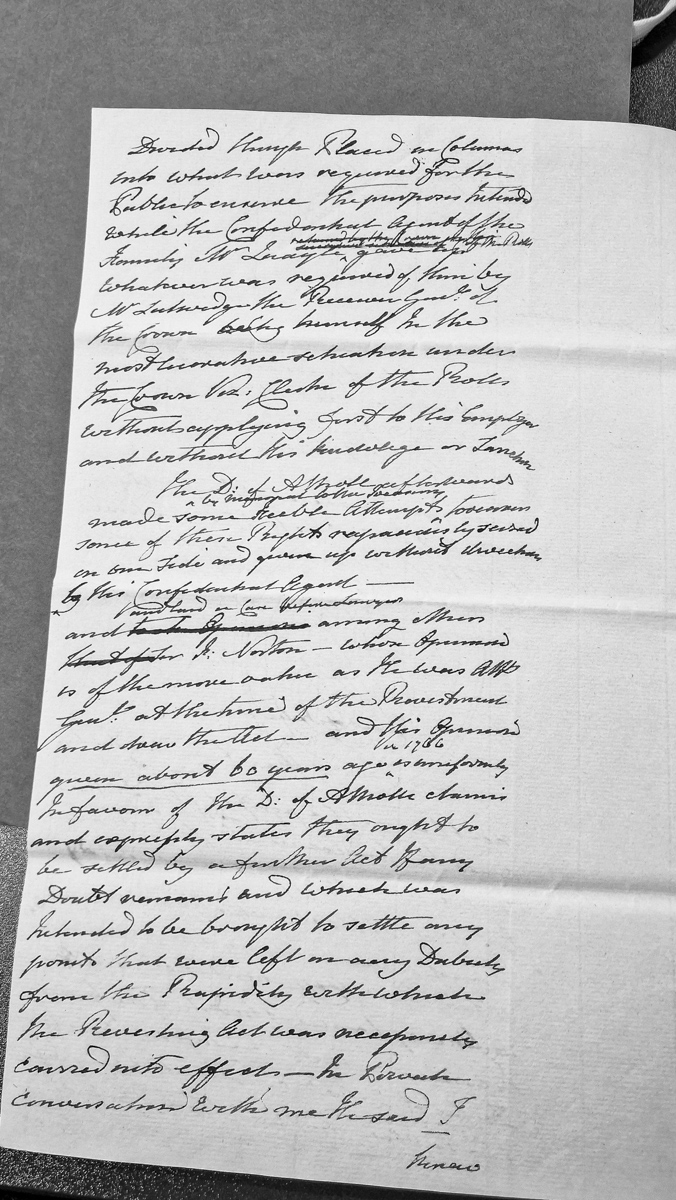 Divided though Placed in Columns
into what was required for the
Public to ensure the purposes Intended
while the Confidential Agent of the
Family Mr Quayle gave up
whatever was required of him by
Mr Lutwidge the Receiver Genl. of
the Crown being himself In the
most lucrative situation under
the Crown Viz: Clerk of the Rolls
without applying first to His Employer
and without His knowledge or Sanction
The D: of Atholl afterwards
by Memorial to the Treasury
made some feeble Attempts to
some of these Rights rapaciously seized
on one side and given up without direction
by His Confidential Agent —
and laid a Case before Lawyers
and among them
Sir F: Norton — whose Opinion
is of the more value as He was Atty
Genl. at the time of the Revestment
and drew the Act — and His Opinion
in 1766
given about 60 years ago is uniformly
In favour of the D: of Atholls claims
and expressly states they ought to
be settled by a further Act If any
Doubt remains and which was
Intended to be brought to settle any
points that were left in any Dubiety
from the Rapidity with which
the Revesting Act was necessarily
carried into effect — In Private
conversation with me He said I
knew